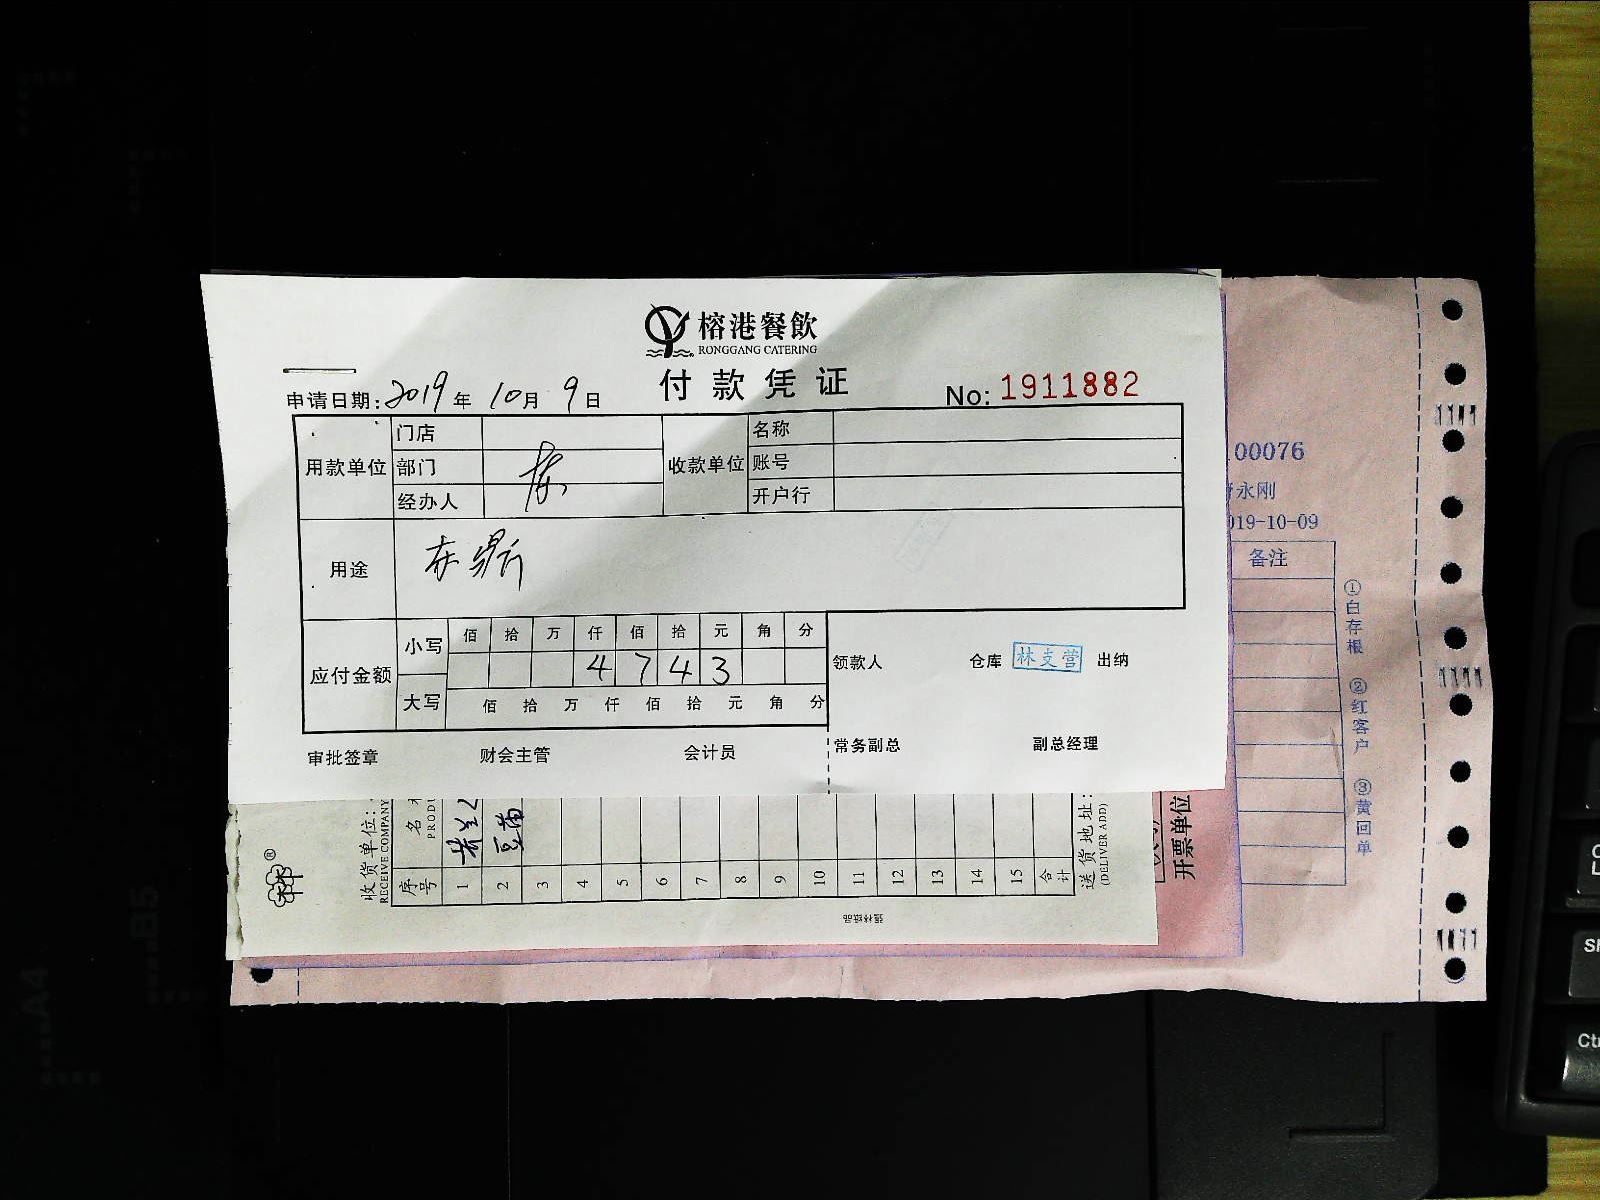 榕港餐飲
RONGGANG CATERING
付款凭证
申请日期: 2019 年 10 月 9 日
No: 1911882
用款单位 门店 收款单位 名称
部门 账号
经办人 开户行
用途
应付金额 小写 佰 拾 万 仟 佰 拾 元 角 分
4 7 4 3
大写 佰 拾 万 仟 佰 拾 元 角 分
领款人 仓库 林支营 出纳
审批签章 财会主管 会计员 常务副总 副总经理
00076
永刚
019-10-09
备注
①白存根 ②红客户 ③黄回单
开票单位
收货单位:
RECEIVE COMPANY
序号 名
PRODU
1
2 豆苗
3
4
5
6
7
8
9
10
11
12
13
14
15
合计
送货地址:
(DELIVER ADD)
B5
A4
Ctr